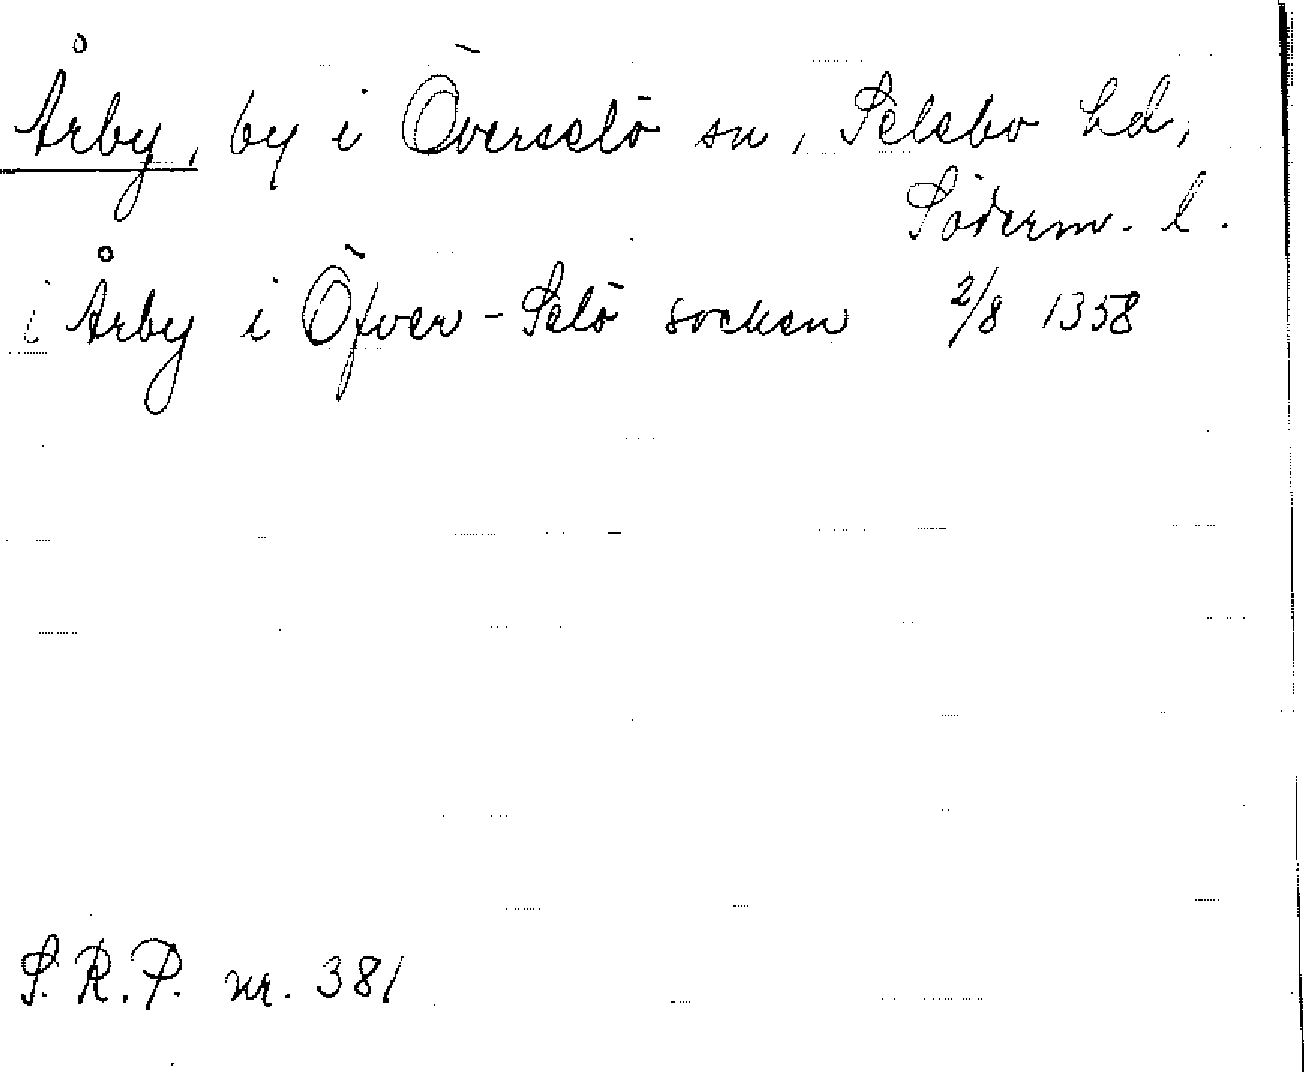 Årby, by i Överselö sn, Selebo hd,
Söderm. l.
i Årby i Öfver-Selö socken 2/8 1358
S.R.P. nr. 381